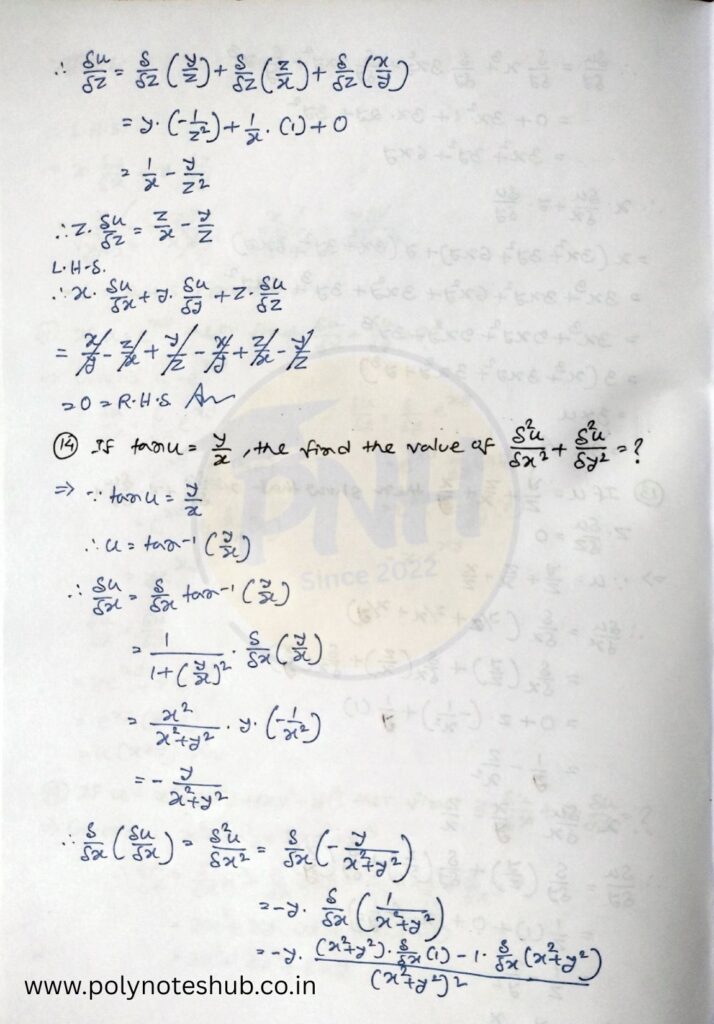 ∴ δu/δz = δ/δz (y/z) + δ/δz (z/x) + δ/δz (x/y)
= y · (-1/z²) + 1/x · (1) + 0
= 1/x - y/z²
∴ z · δu/δz = z/x - y/z
L.H.S.
∴ x · δu/δx + y · δu/δy + z · δu/δz
= x/y - z/x + y/z - x/y + z/x - y/z
= 0 = R.H.S Ans
(14) If tan u = y/x, the find the value of δ²u/δx² + δ²u/δy² = ?
⇒ ∵ tan u = y/x
∴ u = tan⁻¹ (y/x)
∴ δu/δx = δ/δx tan⁻¹ (y/x)
= 1/(1+(y/x)²) · δ/δx (y/x)
= x²/(x²+y²) · y · (-1/x²)
= - y/(x²+y²)
∴ δ/δx (δu/δx) = δ²u/δx² = δ/δx (- y/(x²+y²))
= -y · δ/δx (1/(x²+y²))
= -y · ((x²+y²) · δ/δx (1) - 1 · δ/δx (x²+y²))/(x²+y²)²
PNH
Since 2022
www.polynoteshub.co.in